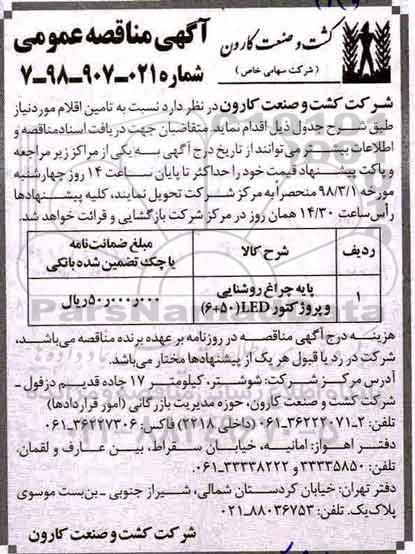 کشت و صنعت کارون
( شرکت سهامی خاص )
آگهی مناقصه عمومی
شماره ۰۲۱-۹۰۷-۹۸-۷
شرکت کشت و صنعت کارون در نظر دارد نسبت به تامین اقلام موردنیاز
طبق شرح جدول ذیل اقدام نماید. متقاضیان جهت دریافت اسنادمناقصه و
اطلاعات بیشتر می‌توانند از تاریخ درج آگهی به یکی از مراکز زیر مراجعه
و پاکت پیشنهاد قیمت خود را حداکثر تا پایان ساعت ۱۴ روز چهارشنبه
مورخه ۹۸/۳/۱ منحصراً به مرکز شرکت تحویل نمایند، کلیه پیشنهادها
رأس ساعت ۱۴/۳۰ همان روز در مرکز شرکت بازگشایی و قرائت خواهد شد.
ردیف
شرح کالا
مبلغ ضمانت‌نامه
یا چک تضمین شده بانکی
۱
پایه چراغ روشنایی
و پروژکتور LED (۵۰+۶)
۵۰٫۰۰۰٫۰۰۰ ریال
هزینه درج آگهی مناقصه در روزنامه بر عهده برنده مناقصه می‌باشد،
شرکت در رد یا قبول هر یک از پیشنهادها مختار می‌باشد.
آدرس مرکز شرکت: شوشتر، کیلومتر ۱۷ جاده قدیم دزفول -
شرکت کشت و صنعت کارون، حوزه مدیریت بازرگانی (امور قراردادها)
تلفن: ۲-۳۶۲۲۲۰۷۱-۰۶۱ (داخلی ۲۲۱۸) فاکس: ۳۶۲۲۷۳۰۶-۰۶۱
دفتر اهواز: امانیه، خیابان سقراط، بین عارف و لقمان،
تلفن: ۳۳۳۳۵۸۵۰ و ۳۳۳۳۸۲۲۲-۰۶۱
دفتر تهران: خیابان کردستان شمالی، شیراز جنوبی - بن‌بست موسوی
پلاک یک. تلفن: ۸۸۰۳۶۷۵۳-۰۲۱
شرکت کشت و صنعت کارون